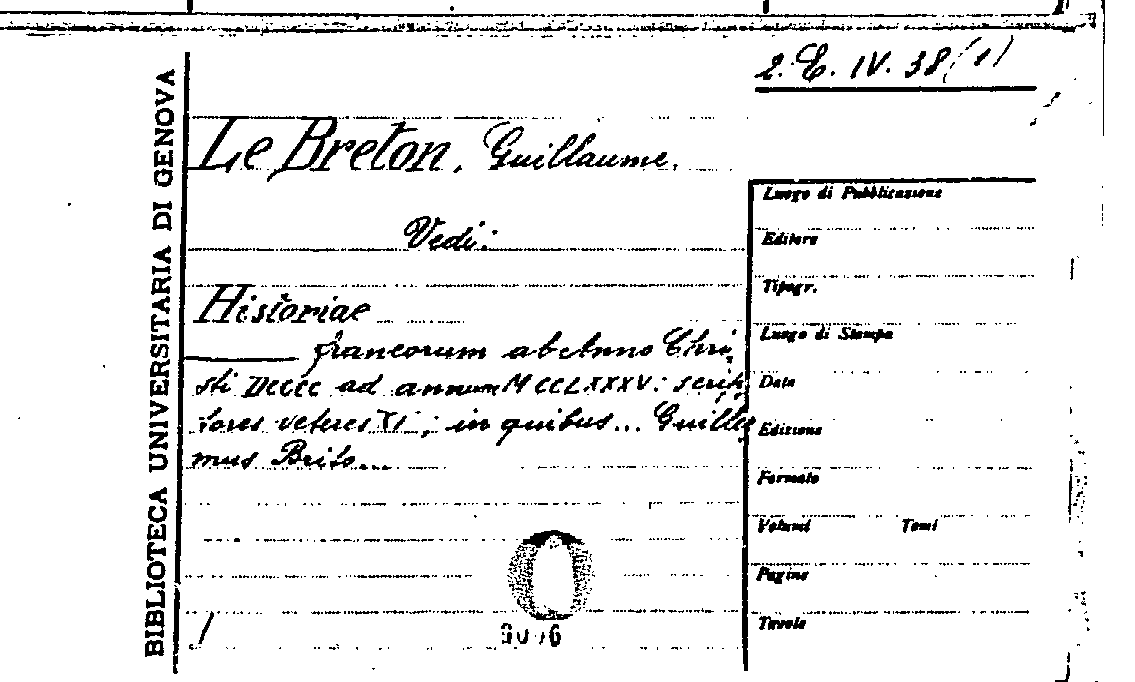 2. E. IV. 38 (1)
BIBLIOTECA UNIVERSITARIA DI GENOVA
Le Breton, Guillaume.
Vedi:
Historiae
francorum ab Anno Chri
sti DCCCC ad annum MCCLXXXV. scrip
tores veteres XI; in quibus... Guillel
mus Brito...
Luogo di Pubblicazione
Editore
Tipogr.
Luogo di Stampa
Data
Edizione
Formato
Volumi Tomi
Pagine
Tavole